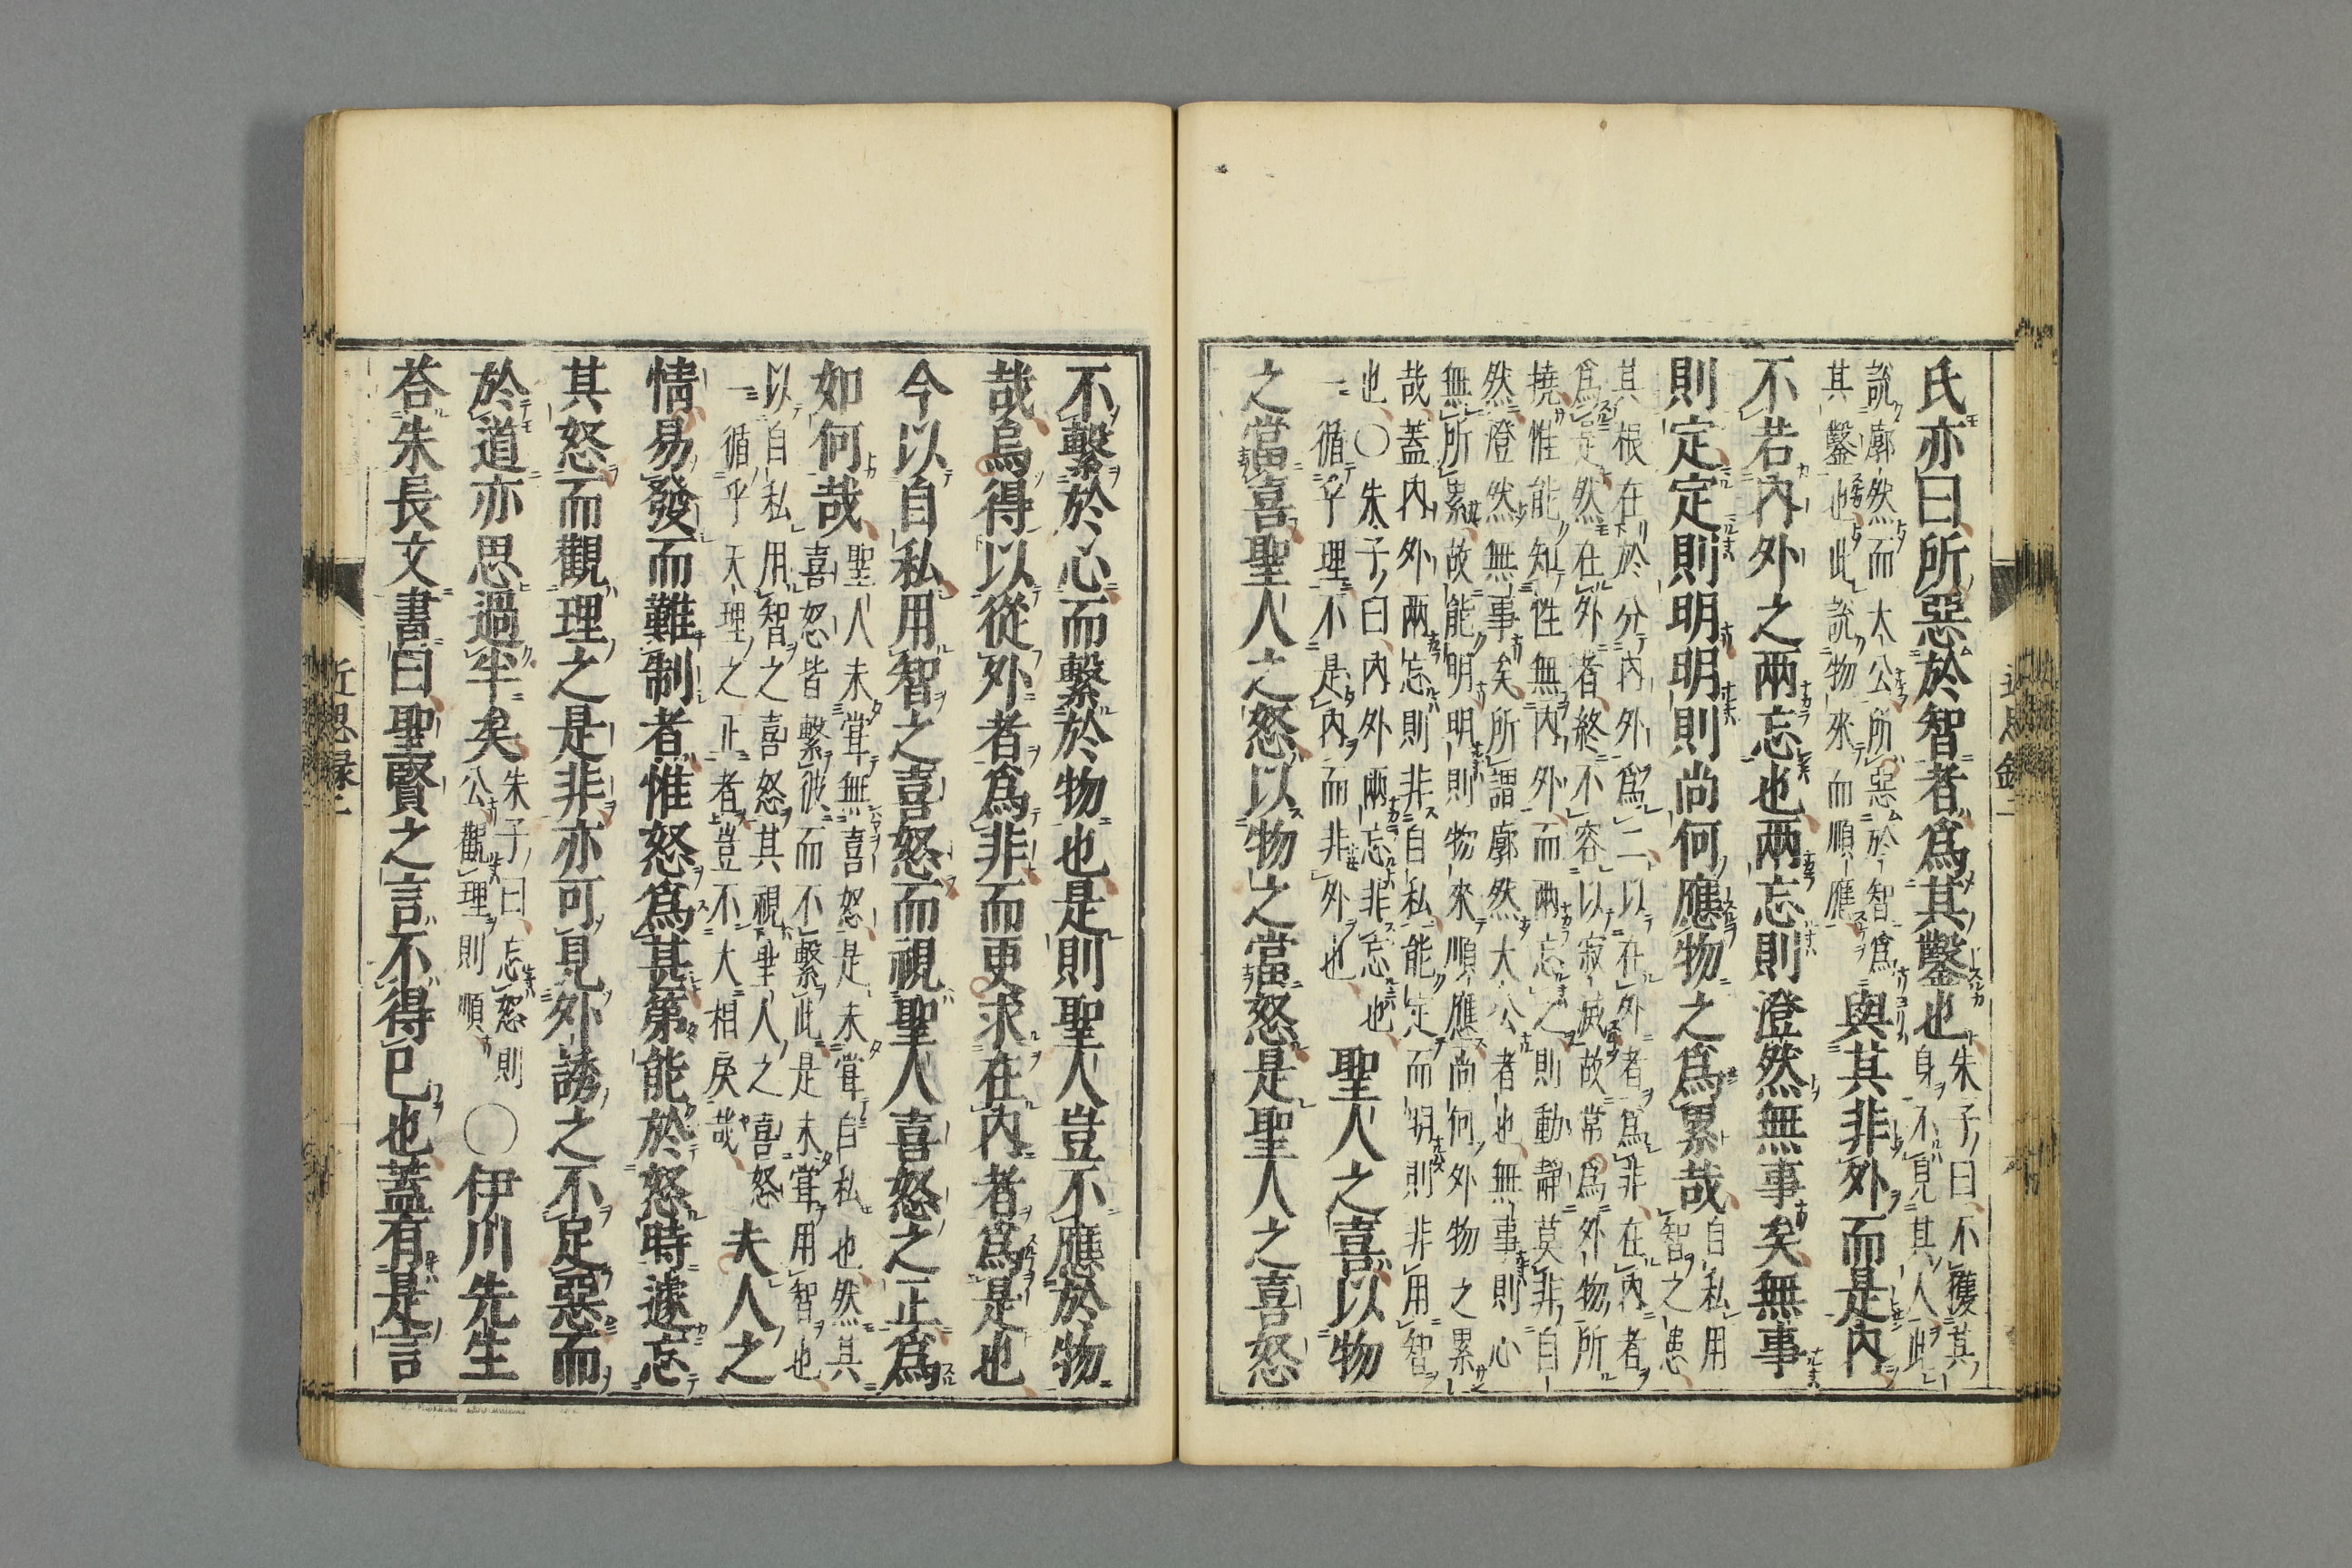 氏亦曰所惡於智者爲其鑿也朱子曰不獲其
身不見其人此
說廓然而大公所惡於智爲
其鑿也此說物來而順應與其非外而是内
不若内外之兩忘也兩忘則澄然無事矣無事
則定定則明明則尚何應物之爲累哉自私用
智之患
其根在於分内外爲二以在外者爲非在内者
爲是然在外者終不容以寂滅故常爲外物所
撓惟能知性無内外而兩忘之則動靜莫非自
然澄然無事矣所謂廓然大公者也無事則心
無所累故能明明則物來順應尚何外物之累
哉蓋内外兩忘則非自私能定而明則非用智
也○朱子曰内外兩忘非忘也
一循乎理不是内而非外也聖人之喜以物
之當喜聖人之怒以物之當怒是聖人之喜怒
不繫於心而繫於物也是則聖人豈不應於物
哉烏得以從外者爲非而更求在内者爲是也
今以自私用智之喜怒而視聖人喜怒之正爲
如何哉聖人未甞無喜怒是未甞自私也然其
喜怒皆繫彼而不繫此是未甞用智也
以自私用智之喜怒其視聖人之喜怒
一循乎天理之正者豈不大相戾哉夫人之
情易發而難制者惟怒爲甚第能於怒時遽忘
其怒而觀理之是非亦可見外誘之不足惡而
於道亦思過半矣朱子曰忘怒則
公觀理則順○伊川先生
荅朱長文書曰聖賢之言不得已也蓋有是言
近思録二